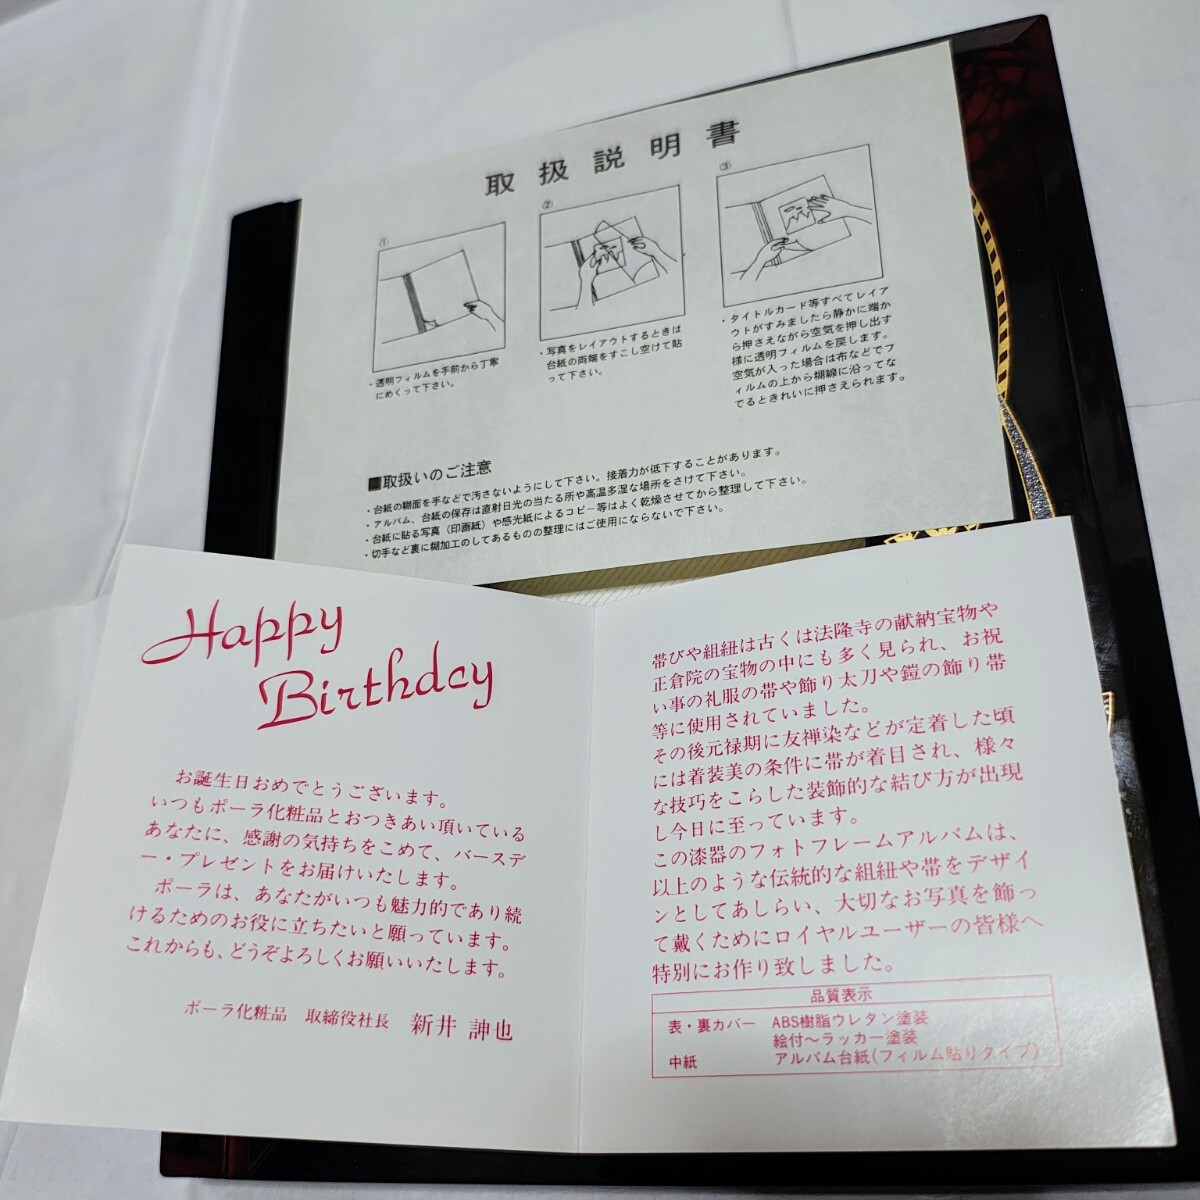 取扱説明書
①
・透明フィルムを手前から丁寧
にめくって下さい。
②
・写真をレイアウトするときは
台紙の両端をすこし空けて貼
って下さい。
③
・タイトルカード等すべてレイア
ウトがすみましたら静かに端か
ら押さえながら空気を押し出す
様に透明フィルムを戻します。
空気が入った場合は布などでフ
ィルムの上から糊線に沿ってな
でるときれいに押さえられます。
■取扱いのご注意
・台紙の糊面を手などで汚さないようにして下さい。接着力が低下することがあります。
・アルバム、台紙の保存は直射日光の当たる所や高温多湿な場所をさけて下さい。
・台紙に貼る写真（印画紙）や感光紙によるコピー等はよく乾燥させてから整理して下さい。
・切手など裏に糊加工のしてあるものの整理にはご使用にならないで下さい。
Happy
Birthday
お誕生日おめでとうございます。
いつもポーラ化粧品とおつきあい頂いている
あなたに、感謝の気持ちをこめて、バースデ
ー・プレゼントをお届けいたします。
ポーラは、あなたがいつも魅力的であり続
けるためのお役に立ちたいと願っています。
これからも、どうぞよろしくお願いいたします。
ポーラ化粧品 取締役社長 新井 訷也
帯びや組紐は古くは法隆寺の献納宝物や
正倉院の宝物の中にも多く見られ、お祝
い事の礼服の帯や飾り太刀や鎧の飾り帯
等に使用されていました。
その後元禄期に友禅染などが定着した頃
には着装美の条件に帯が着目され、様々
な技巧をこらした装飾的な結び方が出現
し今日に至っています。
この漆器のフォトフレームアルバムは、
以上のような伝統的な組紐や帯をデザイ
ンとしてあしらい、大切なお写真を飾っ
て戴くためにロイヤルユーザーの皆様へ
特別にお作り致しました。
品質表示
表・裏カバー ABS樹脂ウレタン塗装
絵付～ラッカー塗装
中紙 アルバム台紙(フィルム貼りタイプ)